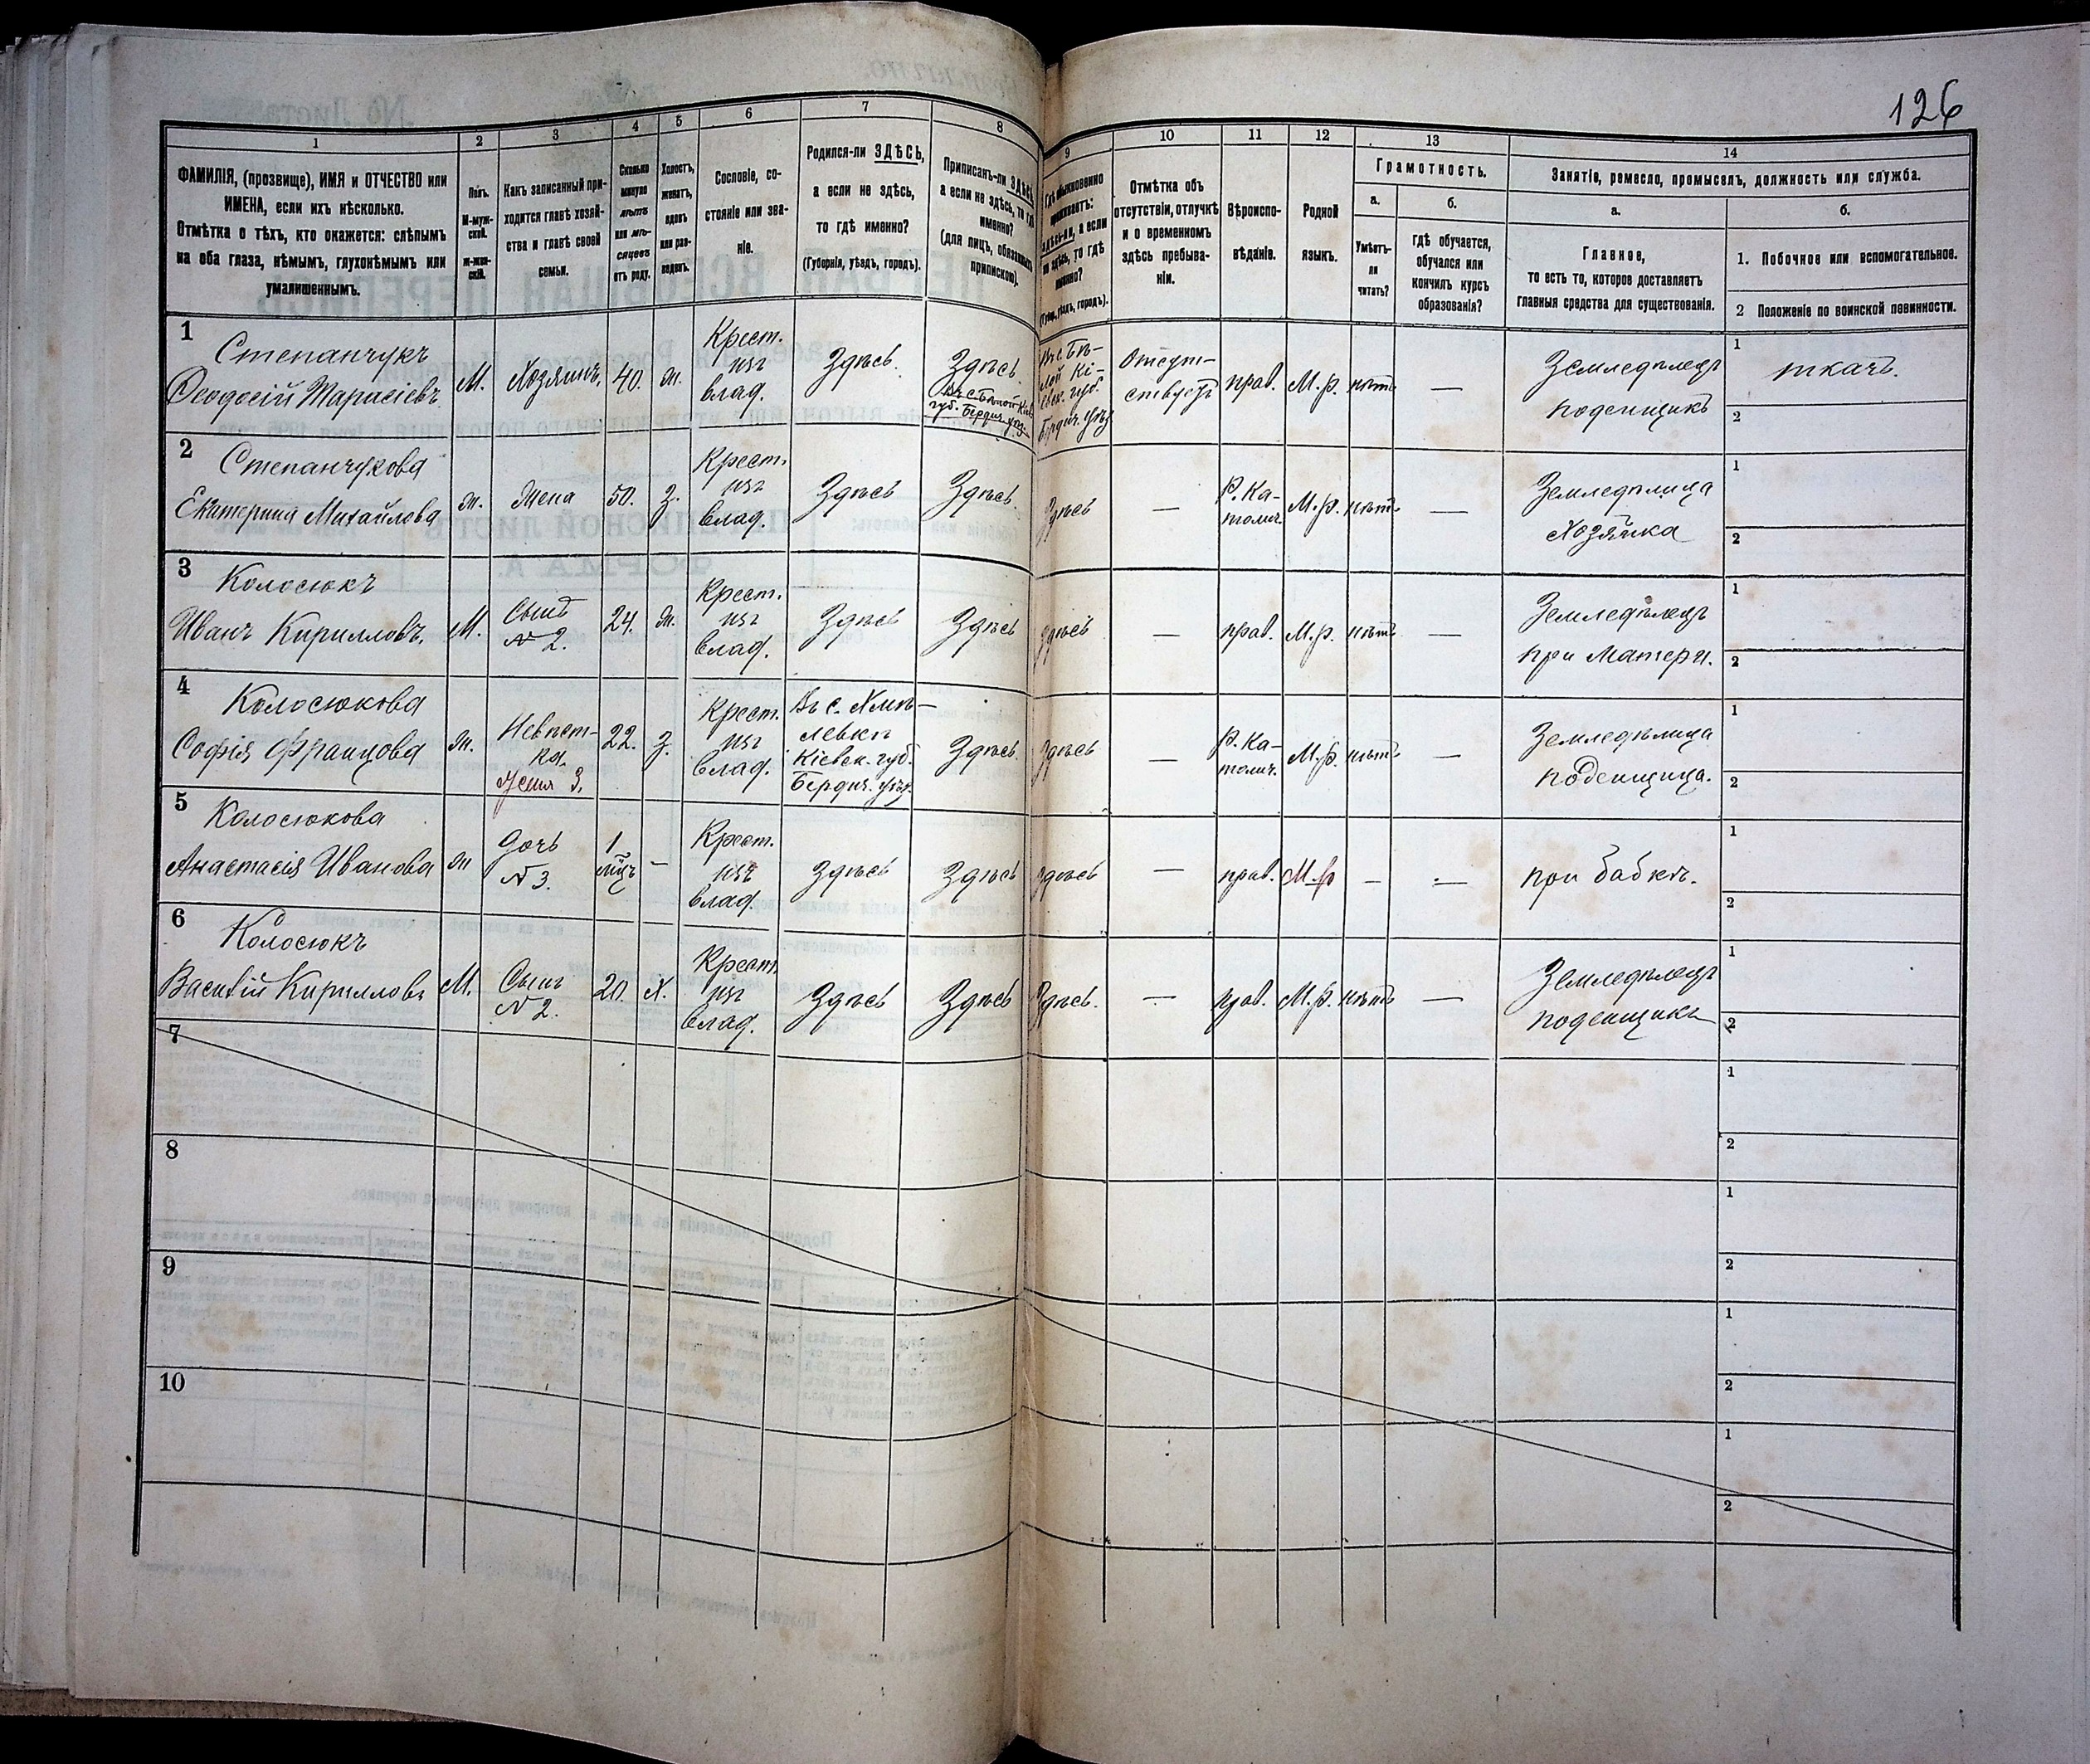 126
1
2
3
4
5
6
7
8
9
10
11
12
13
14
ФАМИЛІЯ, (прозвище), ИМЯ и ОТЧЕСТВО или
ИМЕНА, если ихъ нѣсколько.
Отмѣтка о тѣхъ, кто окажется: слѣпымъ
на оба глаза, нѣмымъ, глухонѣмымъ или
умалишеннымъ.
Полъ.
М-муж-
ской.
ж-жен-
скій.
Какъ записанный при-
ходится главѣ хозяй-
ства и главѣ своей
семьи.
Сколько
минуло
лѣтъ
или мѣ-
сяцевъ
отъ роду.
Холостъ,
женатъ,
вдовъ
или раз-
веденъ.
Сословіе, со-
стояніе или зва-
ніе.
Родился-ли ЗДѢСЬ,
а если не здѣсь,
то гдѣ именно?
(Губернія, уѣздъ, городъ).
Приписанъ-ли ЗДѢСЬ,
а если не здѣсь, то гдѣ
именно?
(для лицъ, обязанныхъ
припискою).
Гдѣ обыкновенно
проживаетъ:
здѣсь-ли, а если
не здѣсь, то гдѣ
именно?
(Губ., уѣздъ, городъ).
Отмѣтка объ
отсутствіи, отлучкѣ
и о временномъ
здѣсь пребыва-
ніи.
Вѣроиспо-
вѣданіе.
Родной
языкъ.
Грамотность.
а.
Умѣетъ-
ли
читать?
б.
гдѣ обучается,
обучался или
кончилъ курсъ
образованія?
Занятіе, ремесло, промыселъ, должность или служба.
а.
Главное,
то есть то, которое доставляетъ
главныя средства для существованія.
б.
1. Побочное или вспомогательное.
2 Положеніе по воинской повинности.
1
Степанчукъ
Ѳеодосій Тарасіевъ
М.
Хозяинъ.
40.
ж.
Крест.
изъ
влад.
Здѣсь.
Здѣсь
Въ с. Бѣлой Кіев.
губ. Бердич. уѣз.
Въ с. Бѣ-
лой Кі-
евск. губ.
Бердич. уѣзд.
Отсут-
ствуетъ
прав.
М.р.
нѣтъ
—
Земледѣлецъ
поденщикъ
1
ткачъ.
2
2
Степанчукова
Екатерина Михайлова
ж.
Жена
50.
З.
Крест.
изъ
влад.
Здѣсь
Здѣсь.
Здѣсь
—
Р. Ка-
толич.
М.р.
нѣтъ
—
Земледѣлица
Хозяйка
1
2
3
Колосюкъ
Иванъ Кирилловъ.
М.
Сынъ
№ 2.
24.
ж.
Крест.
изъ
влад.
Здѣсь
Здѣсь
Здѣсь
—
прав.
М.р.
нѣтъ
—
Земледѣлецъ
при Матери.
1
2
4
Колосюкова
Софія Францова
ж.
Невѣст-
ка.
Жена 3.
22.
З.
Крест.
изъ
влад.
Въ с. Хмѣ-
левки
Кіевск. губ.
Бердич. уѣзд.
Здѣсь.
Здѣсь
—
Р. Ка-
толич.
М.р.
нѣтъ
—
Земледѣлица
поденщица.
1
2
5
Колосюкова
Анастасія Иванова
ж
дочь
№ 3.
1
мѣц.
–
Крест.
изъ
влад.
Здѣсь
Здѣсь
Здѣсь
—
прав.
М.р
–
—
при бабкѣ.
1
2
6
Колосюкъ
Василій Кирилловъ
М.
Сынъ
№ 2.
20.
Х.
Крест.
изъ
влад.
Здѣсь
Здѣсь
Здѣсь.
—
прав.
М.р.
нѣтъ
—
Земледѣлецъ
поденщикъ
1
2
7
1
2
8
1
2
9
1
2
10
1
2